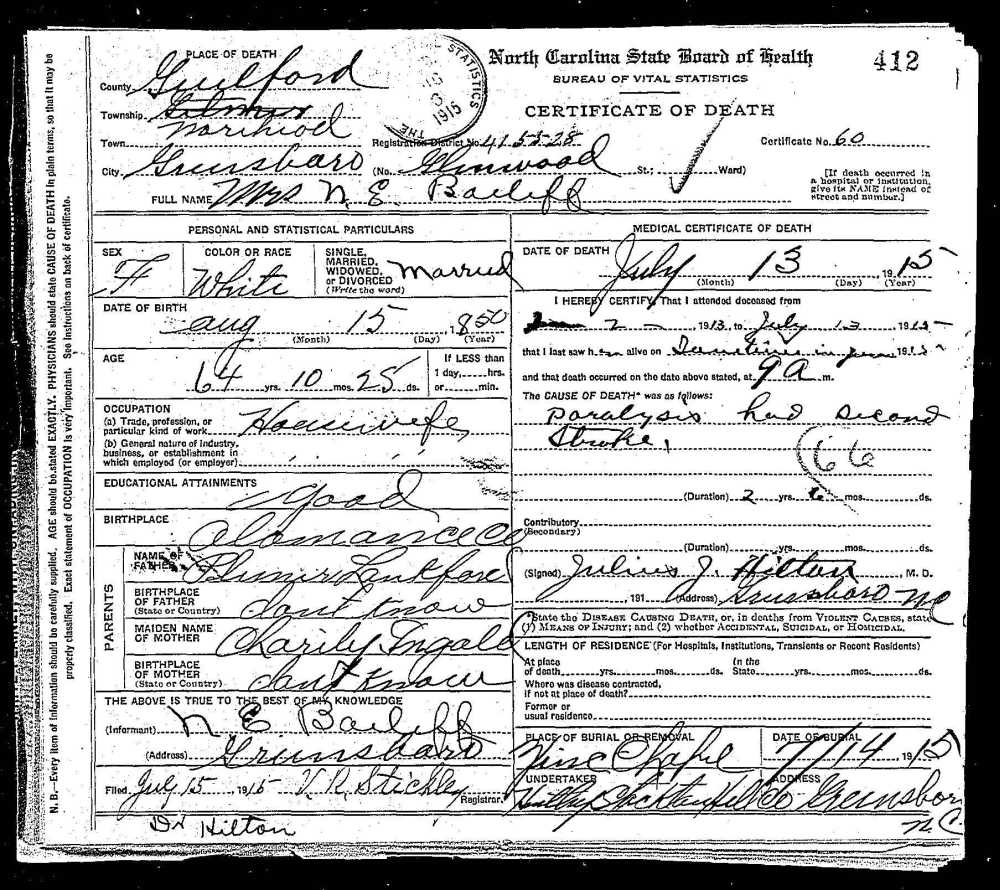 N. B.—Every item of information should be carefully supplied. AGE should be stated EXACTLY. PHYSICIANS should state CAUSE OF DEATH in plain terms, so that it may be
properly classified. Exact statement of OCCUPATION is very important. See instructions on back of certificate.
STATISTICS
1915
THE
North Carolina State Board of Health
412
BUREAU OF VITAL STATISTICS
CERTIFICATE OF DEATH
PLACE OF DEATH
County Guilford
Township Gilmer
Town
Registration District No. 41 55-28
Certificate No. 60
City Grensboro (No. Glinwood St.; Ward)
[If death occurred in
a hospital or institution,
give its NAME instead of
street and number.]
FULL NAME Mrs N. E. Bailiff
PERSONAL AND STATISTICAL PARTICULARS
SEX
F
COLOR OR RACE
White
SINGLE,
MARRIED,
WIDOWED,
or DIVORCED
(Write the word)
Married
DATE OF BIRTH
Aug 15, 1850
(Month) (Day) (Year)
AGE
64 yrs. 10 mos. 25 ds.
If LESS than
1 day, hrs.
or min.
OCCUPATION
(a) Trade, profession, or
particular kind of work Housewife
(b) General nature of industry,
business, or establishment in
which employed (or employer)
EDUCATIONAL ATTAINMENTS
Good
BIRTHPLACE
Alamance Co
PARENTS
NAME OF
FATHER
BIRTHPLACE
OF FATHER
(State or Country)
dont know
MAIDEN NAME
OF MOTHER
Charity Ingold
BIRTHPLACE
OF MOTHER
(State or Country)
dont know
THE ABOVE IS TRUE TO THE BEST OF MY KNOWLEDGE
(Informant) N E Bailiff
(Address) Grensboro
Filed July 15 1915 V. R. Stickley
Registrar.
Dr Hilton
MEDICAL CERTIFICATE OF DEATH
DATE OF DEATH
July 13 1915
(Month) (Day) (Year)
I HEREBY CERTIFY, That I attended deceased from
2 1913, to July 13 1915
that I last saw h alive on Sometime in June 1915
and that death occurred on the date above stated, at 9 A m.
The CAUSE OF DEATH* was as follows:
Paralysis had second
Stroke,
66
(Duration) 2 yrs. 6 mos. ds.
Contributory
(Secondary)
(Duration) yrs. mos. ds.
(Signed) Julius J. Hilton, M. D.
, 191 (Address) Grensboro NC
*State the DISEASE CAUSING DEATH, or, in deaths from VIOLENT CAUSES, state
(1) MEANS OF INJURY; and (2) whether ACCIDENTAL, SUICIDAL, or HOMICIDAL.
LENGTH OF RESIDENCE (For Hospitals, Institutions, Transients or Recent Residents)
At place
of death yrs. mos. ds.
In the
State yrs. mos. ds.
Where was disease contracted,
if not at place of death?
Former or
usual residence
PLACE OF BURIAL OR REMOVAL
Chapel
DATE OF BURIAL
7/14 1915
UNDERTAKER
ADDRESS
Greensboro
N.C.